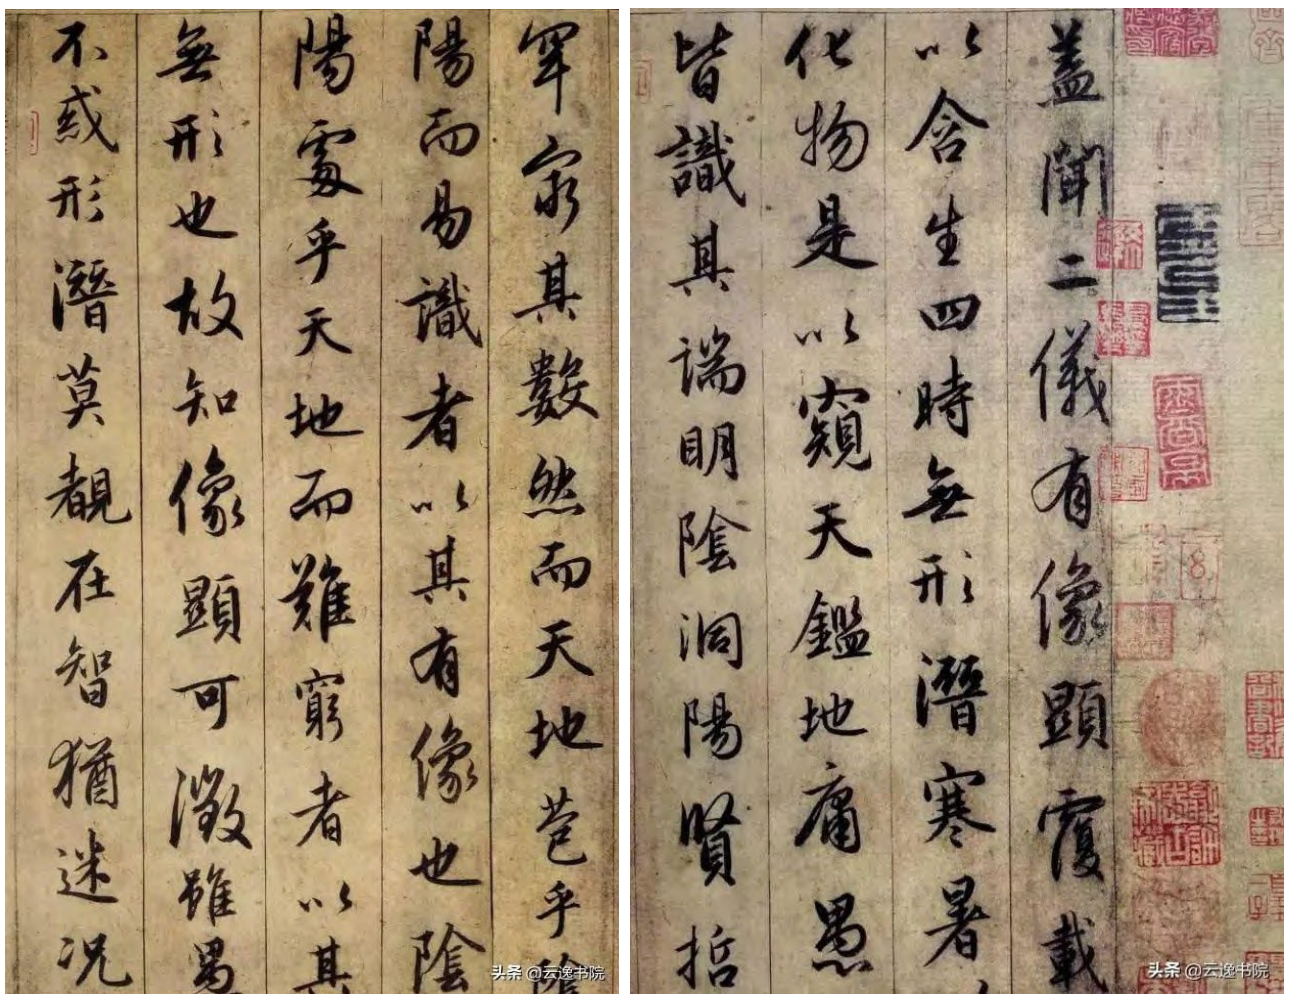 蓋聞二儀有像顯覆載
以含生四時無形潛寒暑
化物是以窺天鑑地庸愚
皆識其端明陰洞陽賢哲
头条 @云逸书院
罕窮其數然而天地苞乎陰
陽而易識者以其有像也陰
陽處乎天地而難窮者以其
無形也故知像顯可徵雖愚
不惑形潛莫覩在智猶迷况
头条 @云逸书院